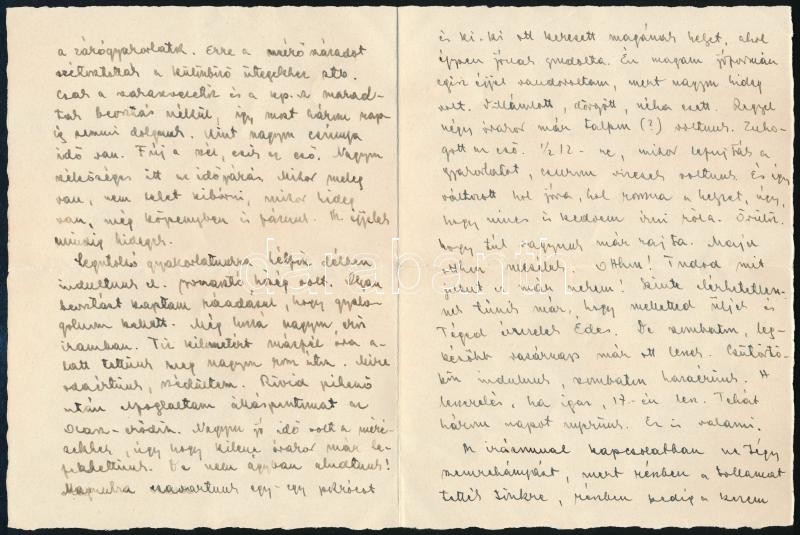 a zárógyakorlatok. Erre a mérő századot
szétosztották a különböző ütegekhez stb.
Csak a szakaszvezetők és a kp. maradtak
beosztás nélkül, így most három napig
semmi dolgunk. Kint nagyon csúnya
idő van. Fúj a szél, esik az eső. Nagyon
szélsőséges itt az időjárás. Mikor meleg
van, nem lehet kibírni, mikor hideg
van, még köpenyben is fázunk. Az éjjelek
mindig hidegek.
Legutolsó gyakorlatunkra hétfőn délben
indultunk el. Borzasztó hőség volt. Olyan
beosztást kaptam ráadásul, hogy gyalogolnom
kellett. Még hozzá nagyon erős
iramban. Tíz kilométert másfél óra alatt
tettünk meg nagyon rossz úton. Mire
odaértünk, szédültem. Rövid pihenő
után elfoglaltam álláspontomat az
erődön. Nagyon jó idő volt a mérésekhez,
úgy hogy kilenc órakor már lefekhettünk.
De nem ágyban aludtunk!
Magunkra csavartunk egy-egy pokrócot
és ki-ki ott keresett magának helyet, ahol
éppen jónak gondolta. Én magam jóformán
egész éjjel vándoroltam, mert nagyon hideg
volt. Villámlott, dörgött, néha esett. Reggel
négy órakor már talpon (?) voltunk. Zuhogott
az eső. 1/2 12-re, mikor lefújták a
gyakorlatot, csurom vizesek voltunk. És így
változott hol jóra, hol rosszra a helyzet, úgy,
hogy nincs is kedvem írni róla. Örülök,
hogy túl vagyunk már rajta. Majd
otthon mesélek. Otthon! Tudod mit
jelent ez már nekem! Szinte elérhetetlennek
tűnik már, hogy melletted üljek és
Téged érezzelek Édes. De szombaton, legkésőbb
vasárnap már ott leszek. Csütörtökön
indulunk, szombaton hazaérünk. A
leszerelés, ha igaz, 17-én lesz. Tehát
három napot nyerünk. Ez is valami.
Az írásommal kapcsolatban ne tégy
szemrehányást, mert részben a tollamat
tették tönkre, részben pedig a kezem